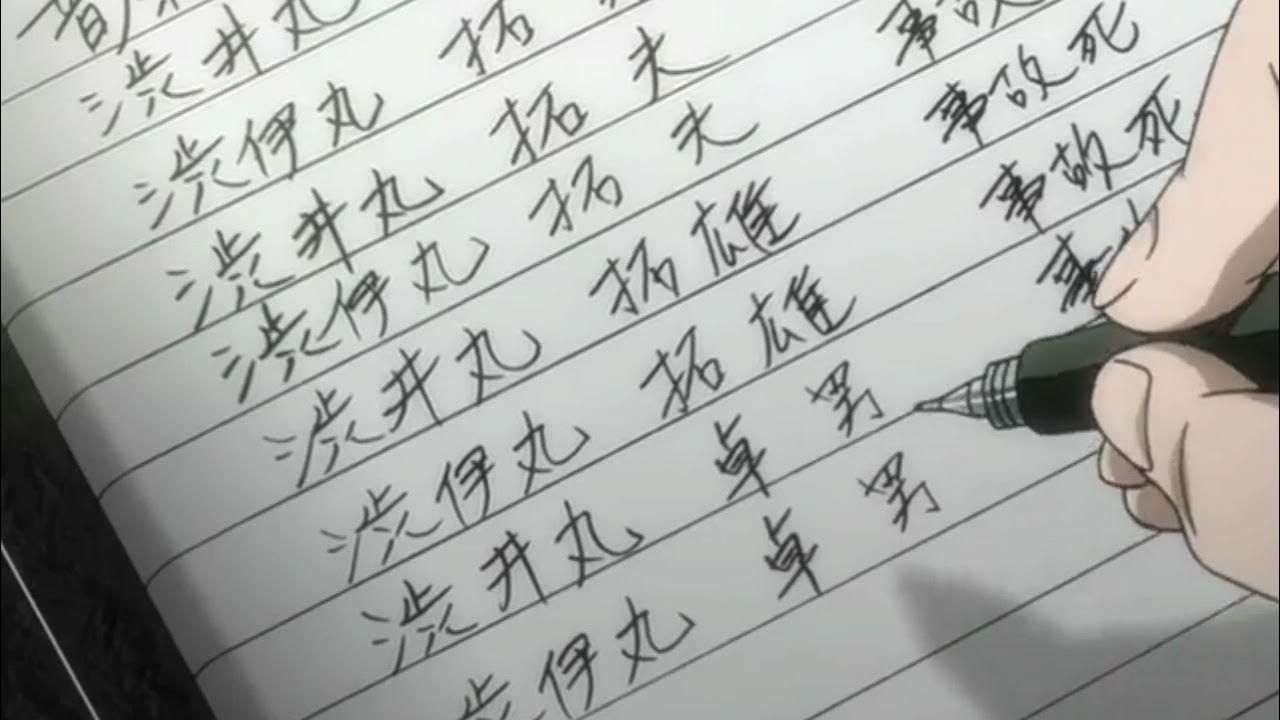 音
渋井丸
渋伊丸 拓
渋井丸 拓 夫
渋伊丸 拓 夫 事故
渋井丸 拓 雄 事故死
渋伊丸 拓 雄 事故死
渋井丸 卓 男 事
渋伊丸 卓 男